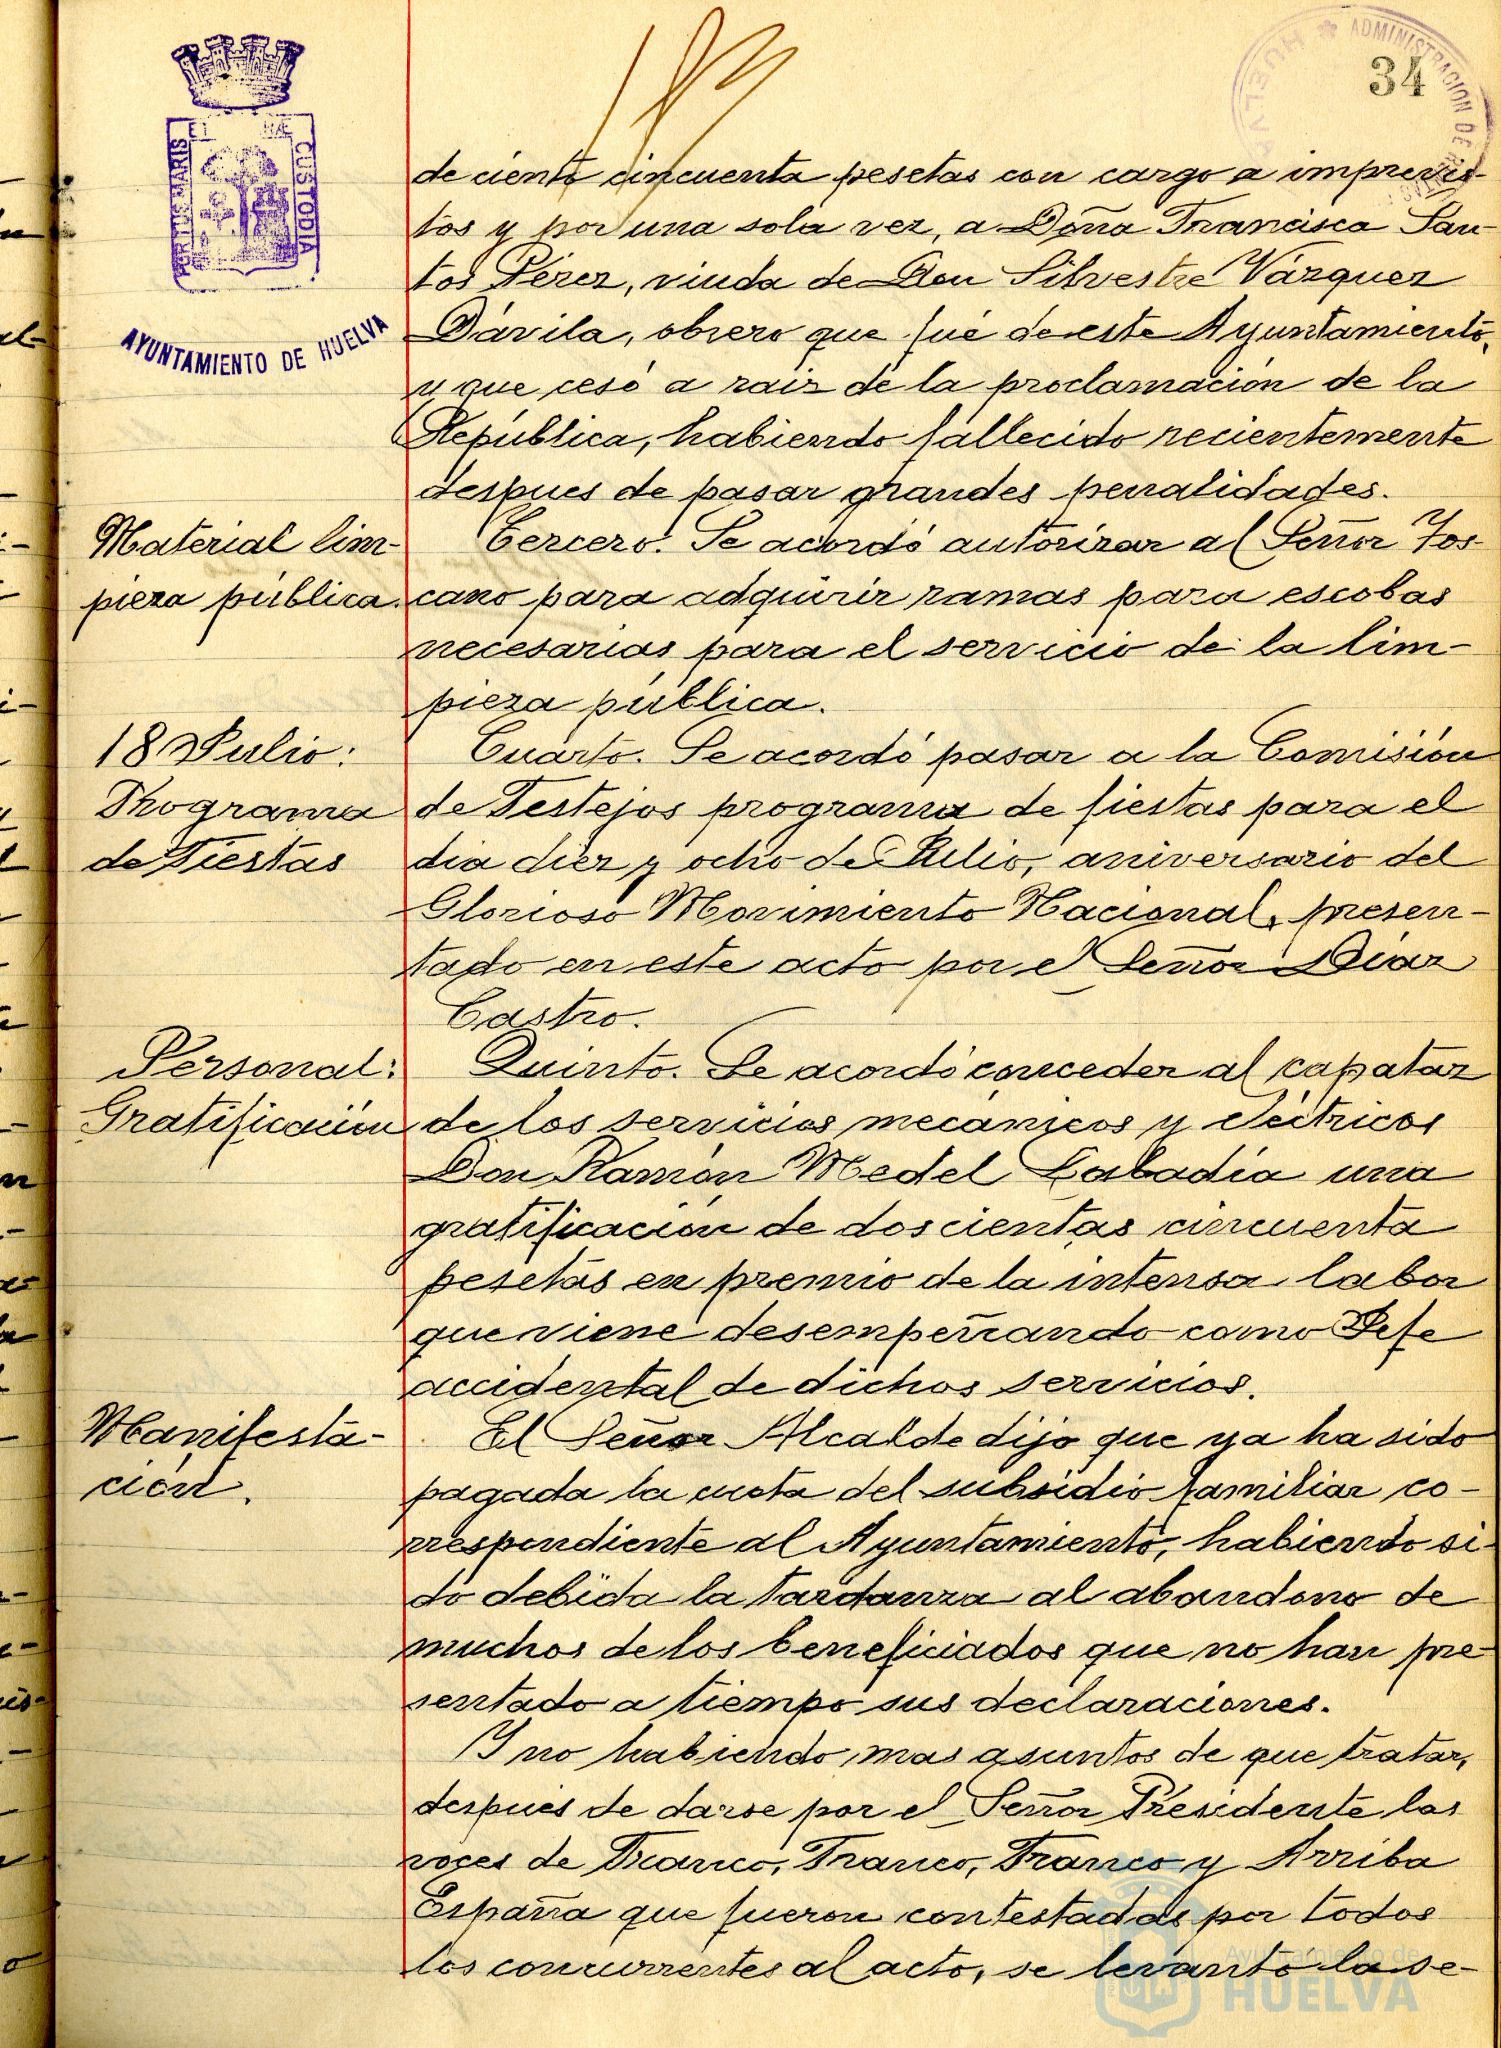 34
ADMINISTRACION DE
HUELVA
PORTUS MARIS ET CUSTODIA
AYUNTAMIENTO DE HUELVA
de ciento cincuenta pesetas con cargo a imprevis-
tos y por una sola vez, a Doña Francisca San-
tos Pérez, viuda de Don Silvestre Vázquez
Dávila, obrero que fué de este Ayuntamiento,
y que cesó a raiz de la proclamación de la
República, habiendo fallecido recientemente
despues de pasar grandes penalidades.
Material lim-
pieza pública.
Tercero. Se acordó autorizar al Señor Tos-
cano para adquirir ramas para escobas
necesarias para el servicio de la lim-
pieza pública.
18 Julio:
Programa
de Fiestas
Cuarto. Se acordó pasar a la Comisión
de Festejos programa de fiestas para el
dia diez y ocho de Julio, aniversario del
Glorioso Movimiento Nacional, presen-
tado en este acto por el Señor Diaz
Castro.
Personal:
Gratificación
Quinto. Se acordó conceder al capataz
de los servicios mecánicos y eléctricos
Don Ramón Medel Labadía una
gratificación de doscientas cincuenta
pesetas en premio de la intensa labor
que viene desempeñando como Jefe
accidental de dichos servicios.
Manifesta-
ción.
El Señor Alcalde dijo que ya ha sido
pagada la cuota del subsidio familiar co-
rrespondiente al Ayuntamiento, habiendo si-
do debida la tardanza al abandono de
muchos de los beneficiados que no han pre-
sentado a tiempo sus declaraciones.
Y no habiendo mas asuntos de que tratar,
despues de darse por el Señor Presidente las
voces de Franco, Franco, Franco y Arriba
España que fueron contestadas por todos
los concurrentes al acto, se levantó la se-
Ayuntamiento de
HUELVA